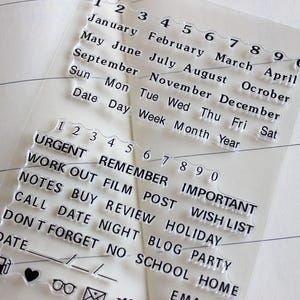 1 2 3 4 5 6 7 8 9 0
January February March April
May June July August October
September November December
Sun Mon Tue Wed Thu Fri Sat
Date Day Week Month Year
1 2 3 4 5 6 7 8 9 0
URGENT REMEMBER IMPORTANT
WORK OUT FILM POST WISH LIST
NOTES BUY REVIEW HOLIDAY
CALL DATE NIGHT BLOG PARTY
DON'T FORGET NO SCHOOL HOME
DATE